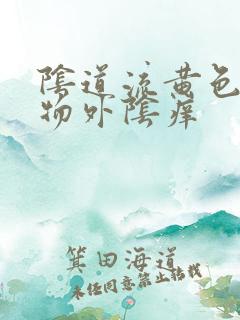 陰道流黄色
物外陰痒
箕田海道
未经同意禁止转载